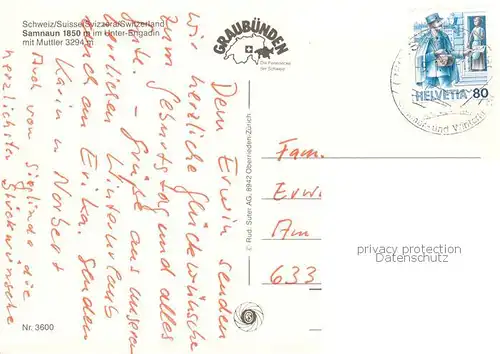 Schweiz/Suisse/Svizzera/Switzerland
Samnaun 1850 m im Unter-Engadin
mit Muttler 3294 m
GRAUBÜNDEN
Die Ferienecke
der Schweiz
HELVETIA 80
und Winter
Dem Erwin senden
wir herzliche Glückwünsche
zum Geburtstag und alles
Gute. – Grüße aus unserem
herrlichen Winterurlaub
auch an Erika. senden
Karin u. Norbert
Auch von Sieglinde die
herzlichsten Glückwünsche
© Rud. Suter AG, 8942 Oberrieden-Zürich
Fam.
Erwi
Am
633
privacy protection
Datenschutz
Nr. 3600